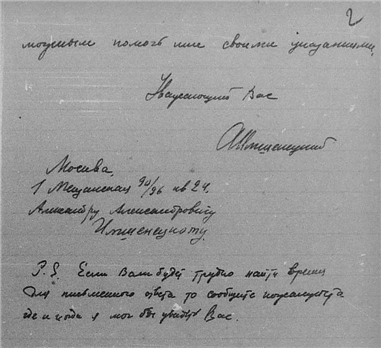 2
можным помочь мне своими указаниями.
Уважающий Вас
Москва.
1 Мещанская 90/96 кв 24.
Александру Александровичу
P.S. Если Вам будет трудно найти время
для письменного ответа то сообщите пожалуйста
где и когда я мог бы увидеть Вас.